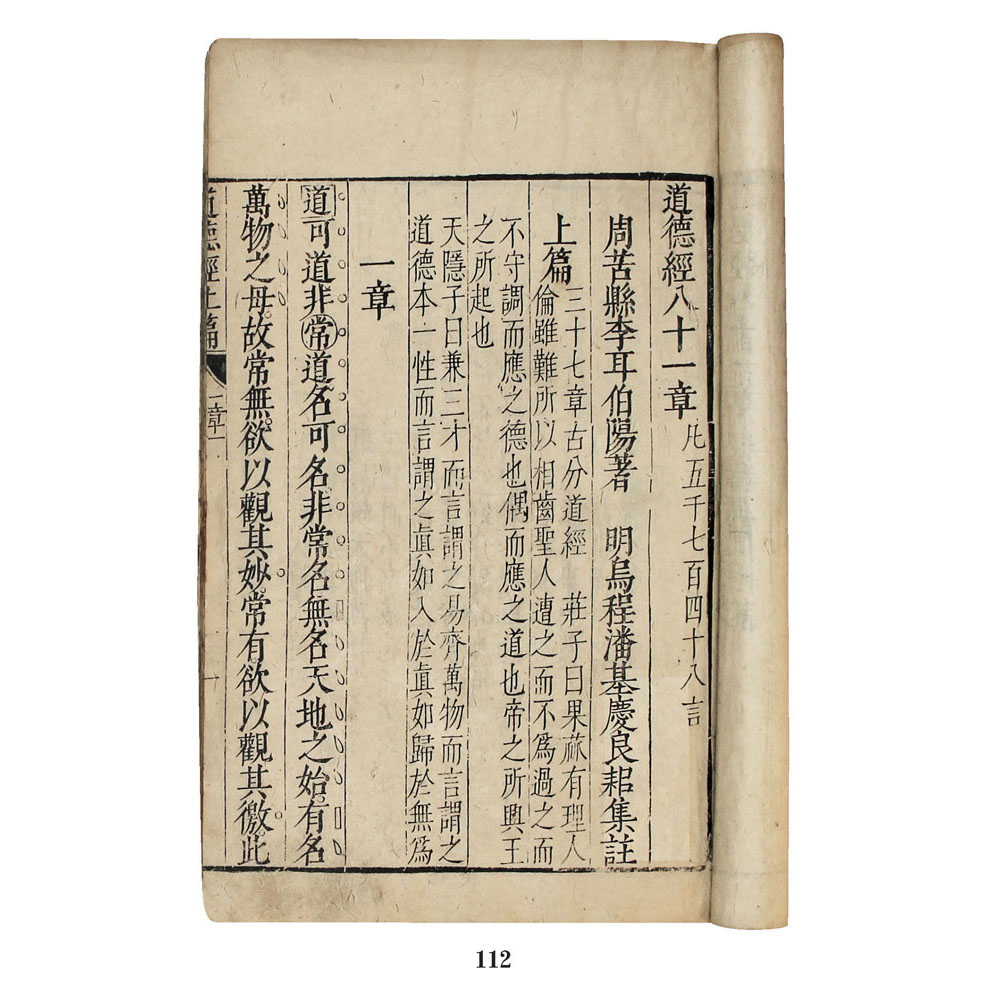 道德經八十一章 凡五千七百四十八言
周苦縣李耳伯陽著 明烏程潘基慶良耜集註
上篇 三十七章古分道經 莊子曰果蓏有理人
倫雖難所以相齒聖人遭之而不爲過之而
不守調而應之德也偶而應之道也帝之所興王
之所起也
天隱子曰兼三才而言謂之易齊萬物而言謂之
道德本一性而言謂之眞如入於眞如歸於無爲
一章
道可道非常道名可名非常名無名天地之始有名
萬物之母故常無欲以觀其妙常有欲以觀其徼此
道德經上篇 一章 一
112